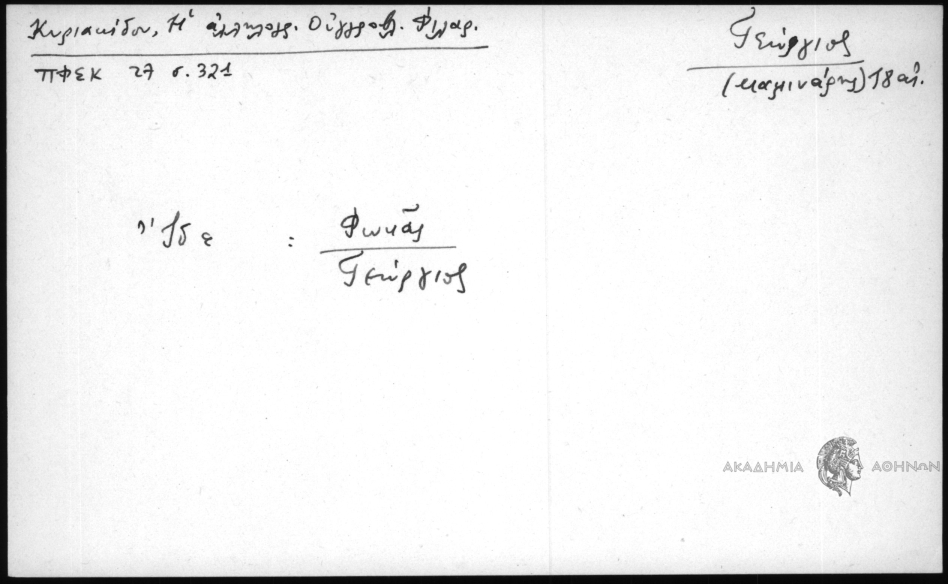 Κυριακίδου, Ἡ ἀλληλογρ. Οὐγγροβλ. Φιλαρ.
ΠΦΣΚ 27 σ. 321
Γεώργιος
(καμινάρης) 18 αἰ.
Ἴδε : Φωκᾶς
Γεώργιος
ΑΚΑΔΗΜΙΑ ΑΘΗΝΩΝ